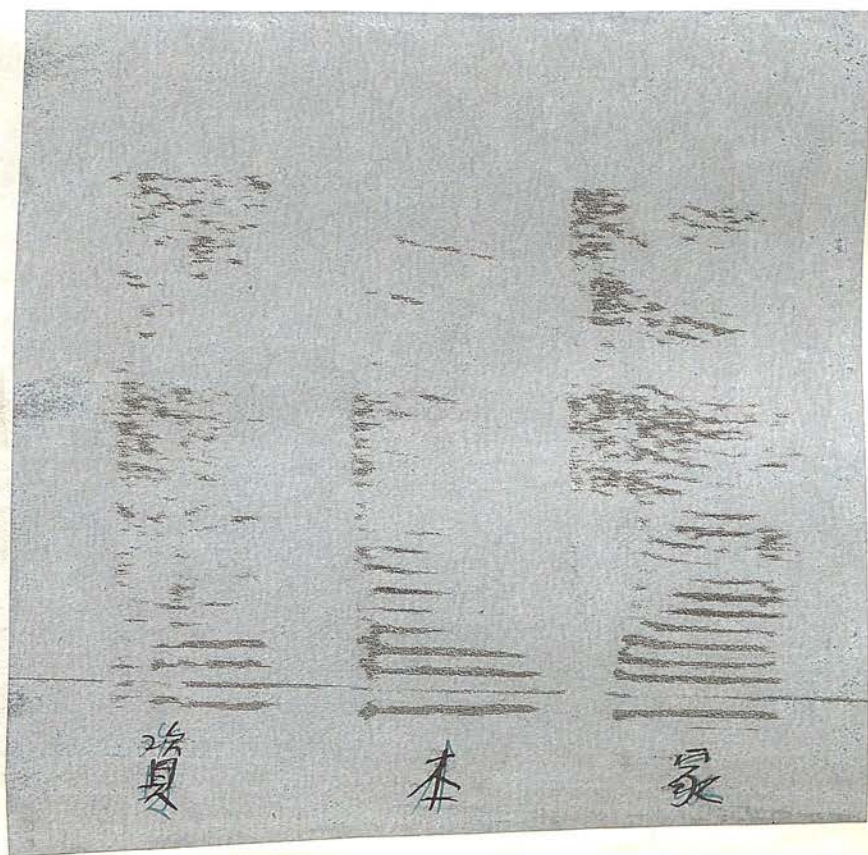 資 本 家